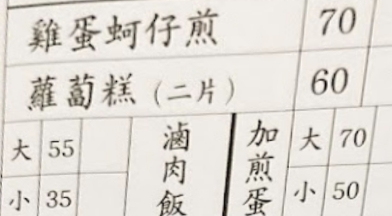 雞蛋蚵仔煎 70
蘿蔔糕（二片） 60
滷肉飯
大 55
小 35
加煎蛋
大 70
小 50